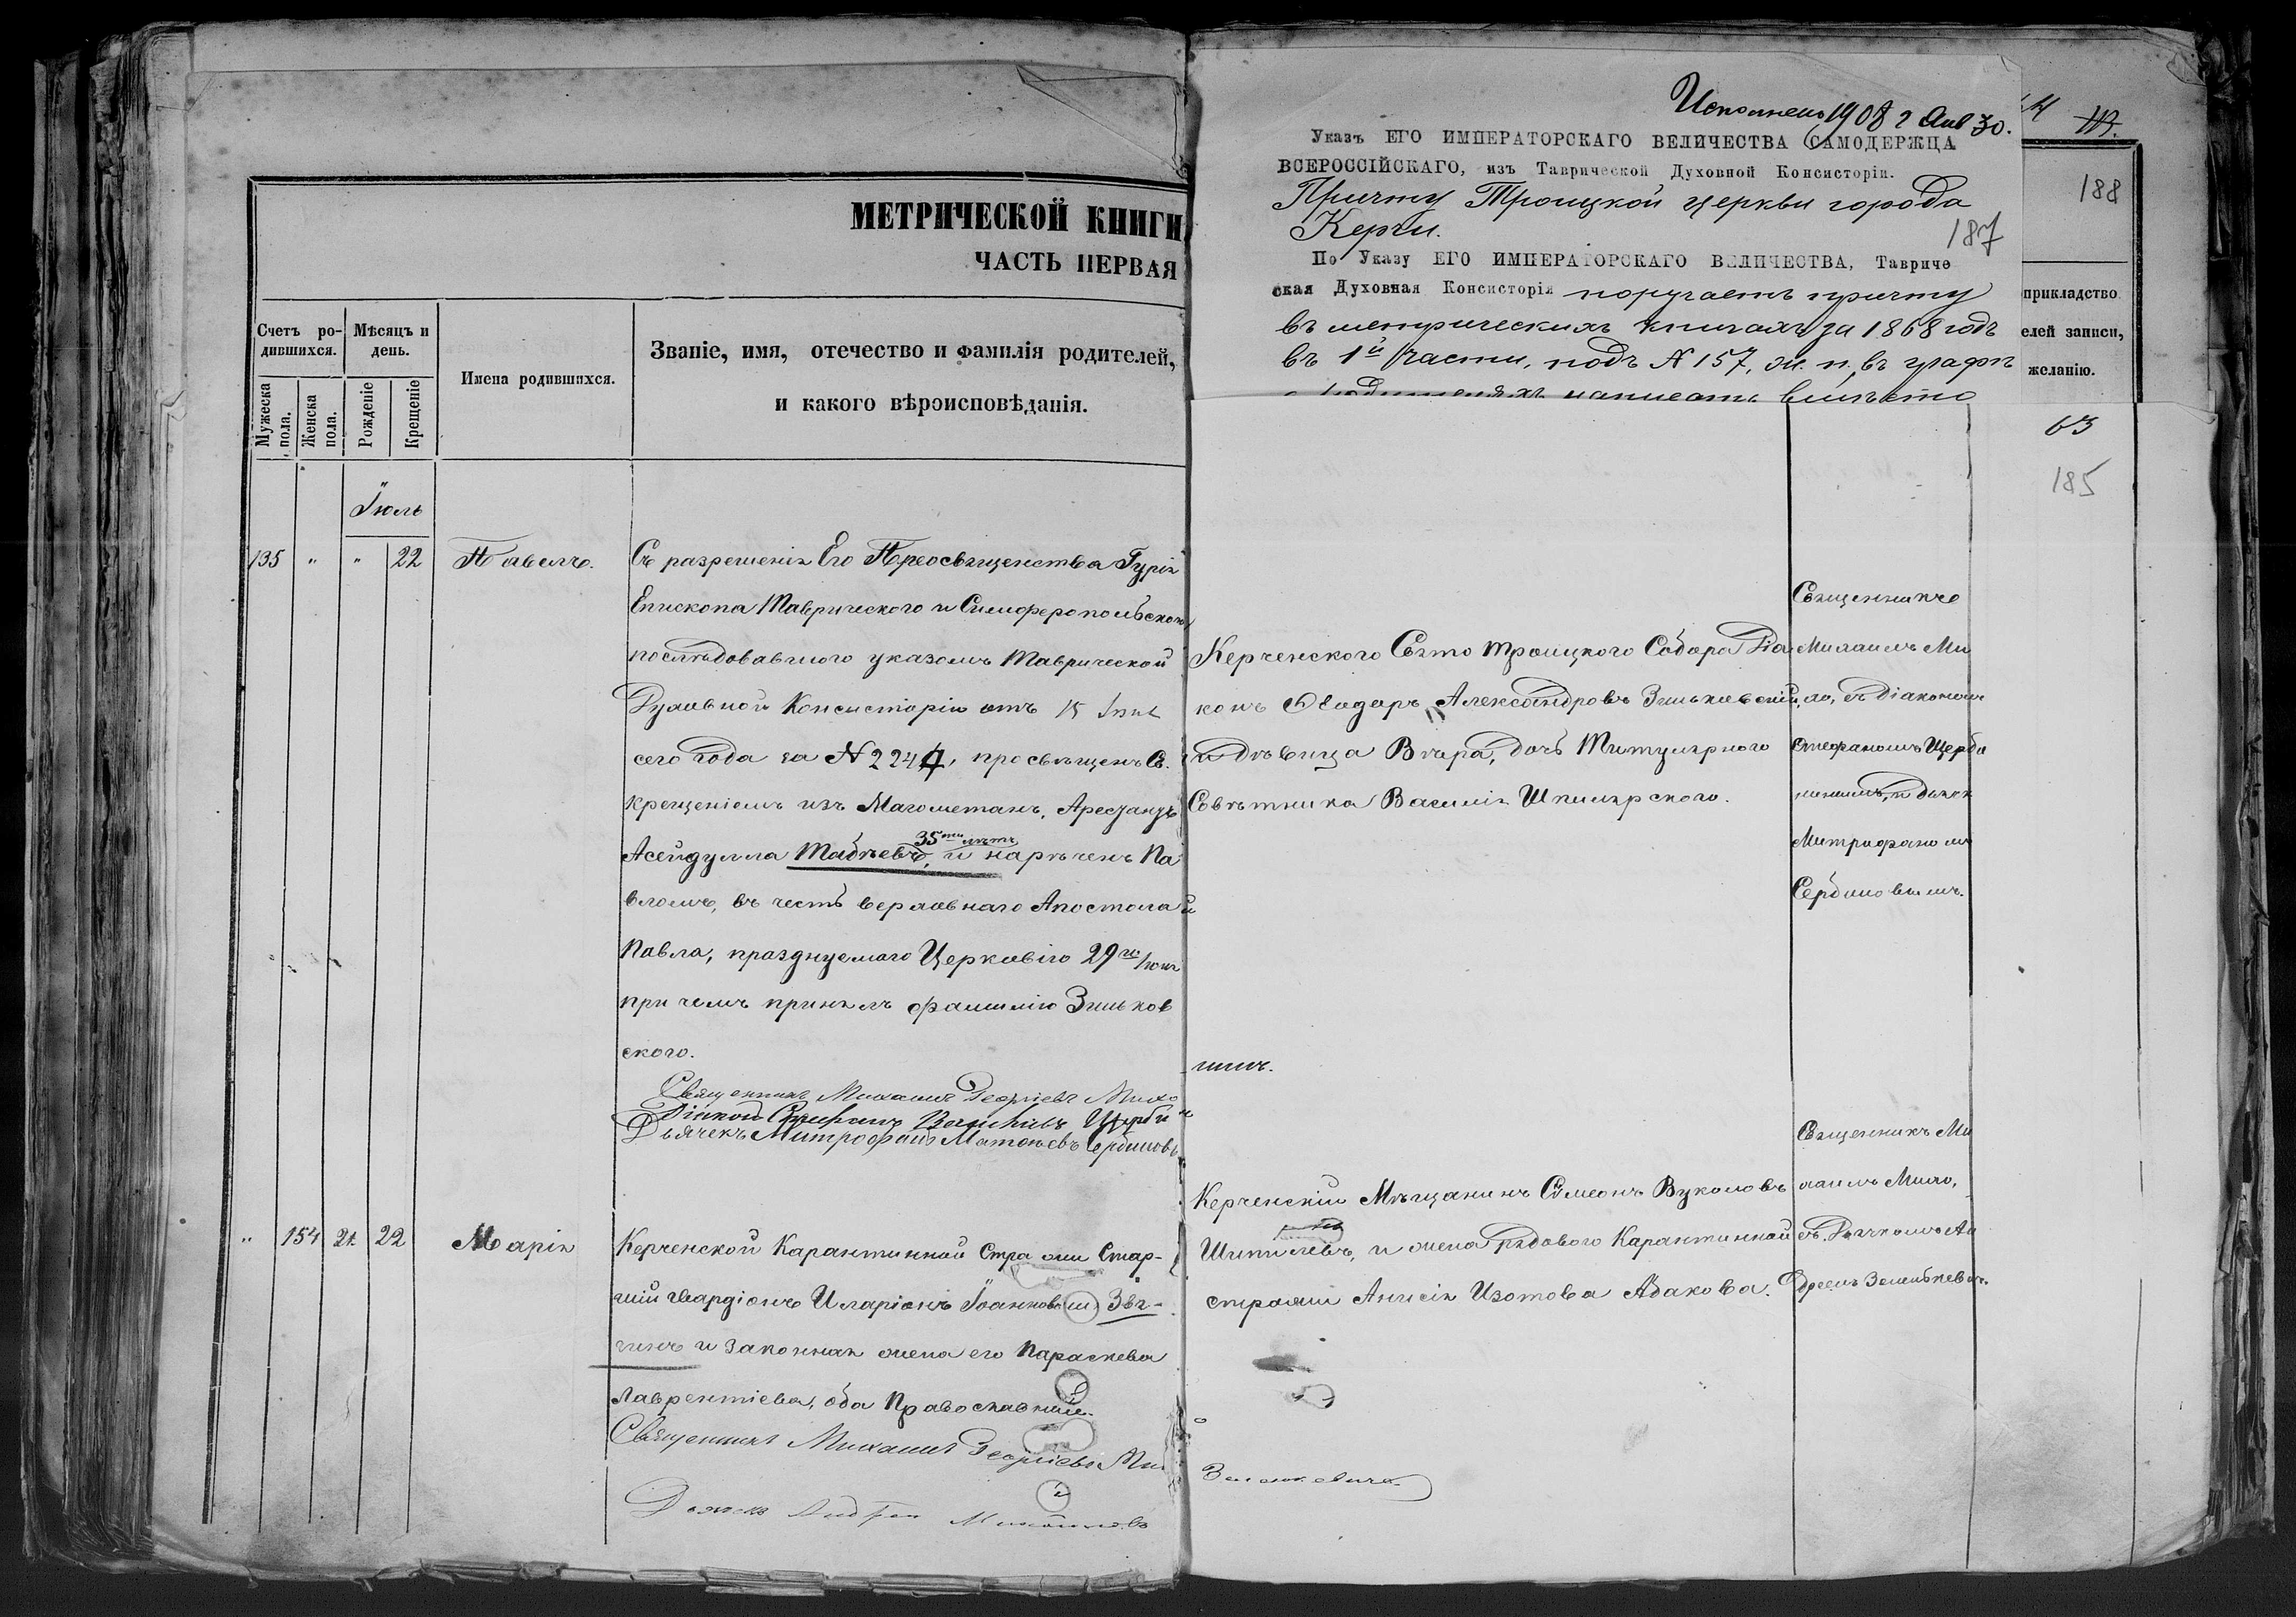 МЕТРИЧЕСКОЙ КНИГИ
ЧАСТЬ ПЕРВАЯ
Счетъ ро-
дившихся.
Мѣсяцъ и
день.
Имена родившихся.
Званіе, имя, отечество и фамилія родителей,
и какого вѣроисповѣданія.
Мужеска
пола.
Женска
пола.
Рожденіе
Крещеніе
Іюль
135 " " 22 Павелъ.
Съ разрешенія Его Преосвященства Гурія
Епископа Таврическаго и Симферопольскаго
послѣдовавшаго указомъ Таврической
Духовной Консисторіи отъ 15 Іюня
сего года за № 2244, просвѣщенъ Св.
крещеніемъ изъ Магометанъ, Арестантъ
35ти лѣтъ
Асейдулла Табѣевъ, и нареченъ Па
вломъ, въ честь верховнаго Апостола
Павла, празднуемаго Церковію 29го Іюня
при чемъ принялъ фамилію Зиньков
скаго.
Священникъ Михаилъ Георгіевъ Михо
Діаконъ Стефанъ Щерби
Дьячекъ Митрофанъ Матвѣевъ Сербиновъ
" 154 21. 22 Марія
Керченской Карантинной Стражи Стар-
шій Гвардіонъ Иларіонъ Іоанновъ Звя-
гинъ и законная жена его Параскева
Лаврентіева, оба Православные.
Священникъ Михаилъ Георгіевъ Ми
Дьячекъ Андрей Михайловъ
Исполнено 1908 г Янв 30.
Указъ ЕГО ИМПЕРАТОРСКАГО ВЕЛИЧЕСТВА САМОДЕРЖЦА
ВСЕРОССІЙСКАГО, изъ Таврической Духовной Консисторіи.
Причту Троицкой церкви города
Керчи.
187
По Указу ЕГО ИМПЕРАТОРСКАГО ВЕЛИЧЕСТВА, Тавриче
ская Духовная Консисторія поручаетъ причту
въ метрическихъ книгахъ за 1868 годъ
въ 1й части, подъ № 157, м. п., въ графѣ
о родителяхъ написать вмѣсто
188
прикладство
елей записи,
желанію.
63
185
Керченскаго Свято Троицкаго Собора Діа
конъ Ѳеодоръ Александровъ Зиньковскій,
и дѣвица Вѣра, дочь Титулярнаго
Совѣтника Василія Шкилярскаго.
Священникъ
Михаилъ Ми
хо, съ діакономъ
Стефаномъ Щерби
Митрофаномъ
Сербиновымъ.
нинъ.
Керченскій Мѣщанинъ Симеонъ Вуколовъ
Шипилевъ, и жена рядоваго Карантинной
стражи Анисія Изотова Адакова.
Священникъ Ми
хаилъ Михо,
съ Дьячкомъ Ан
дреемъ